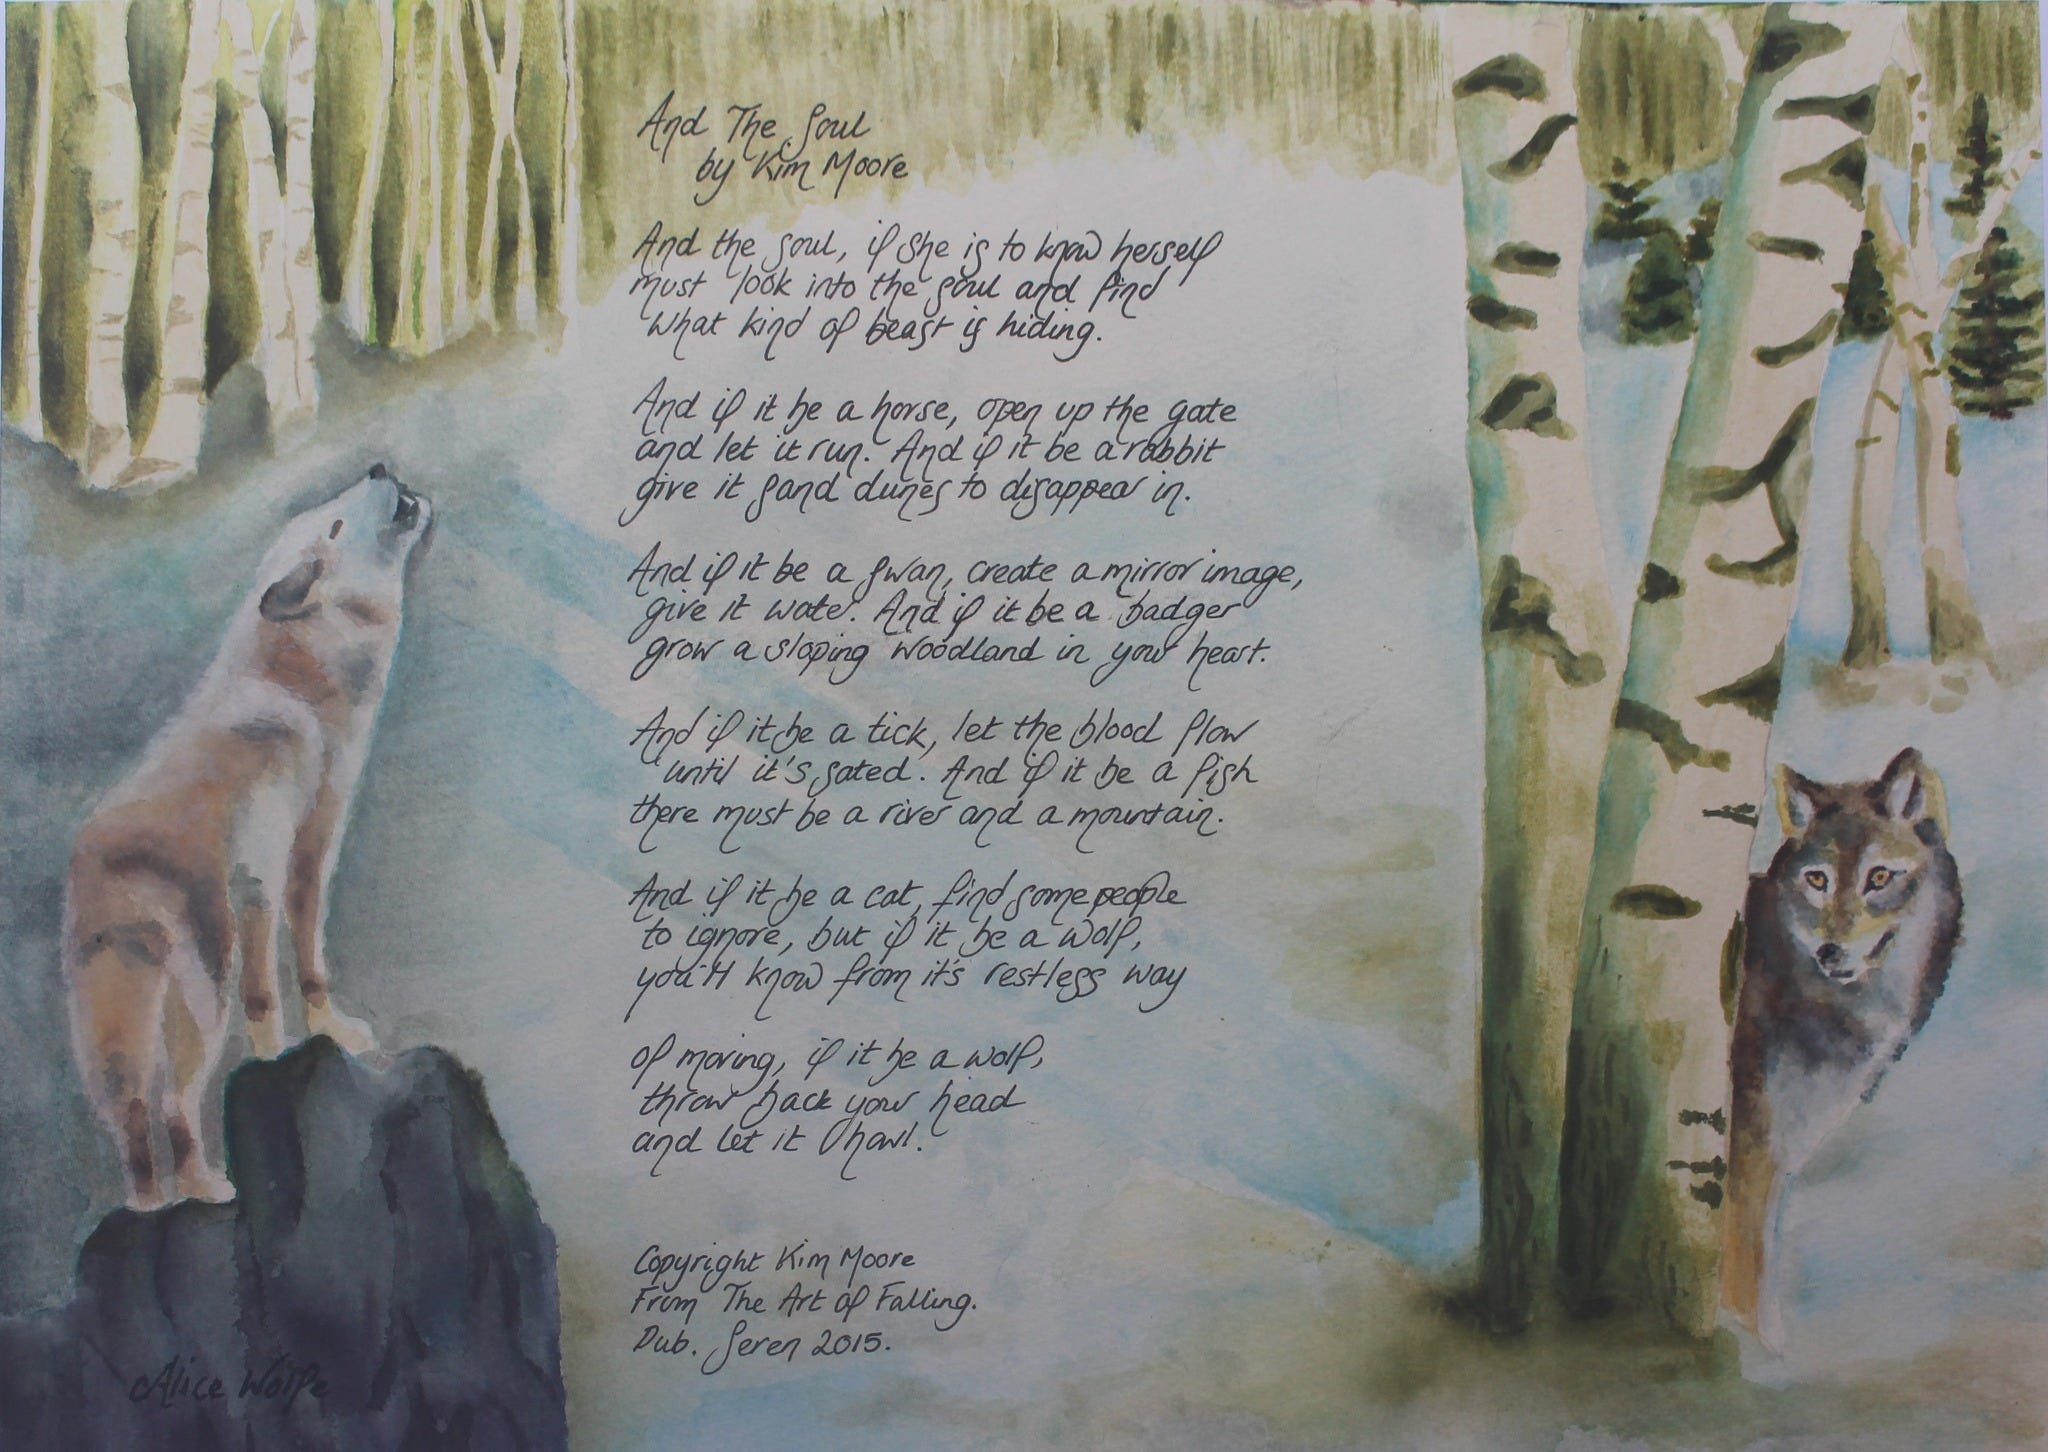 And The Soul
by Kim Moore
And the soul, if she is to know herself
must look into the soul and find
what kind of beast is hiding.
And if it be a horse, open up the gate
and let it run. And if it be a rabbit
give it sand dunes to disappear in.
And if it be a swan, create a mirror image,
give it water. And if it be a badger
grow a sloping woodland in your heart.
And if it be a tick, let the blood flow
until it's sated. And if it be a fish
there must be a river and a mountain.
And if it be a cat, find some people
to ignore, but if it be a wolf,
you'll know from it's restless way
of moving, if it be a wolf,
throw back your head
and let it howl.
Copyright Kim Moore
From The Art of Falling.
Pub. Seren 2015.
Alice Wolfe